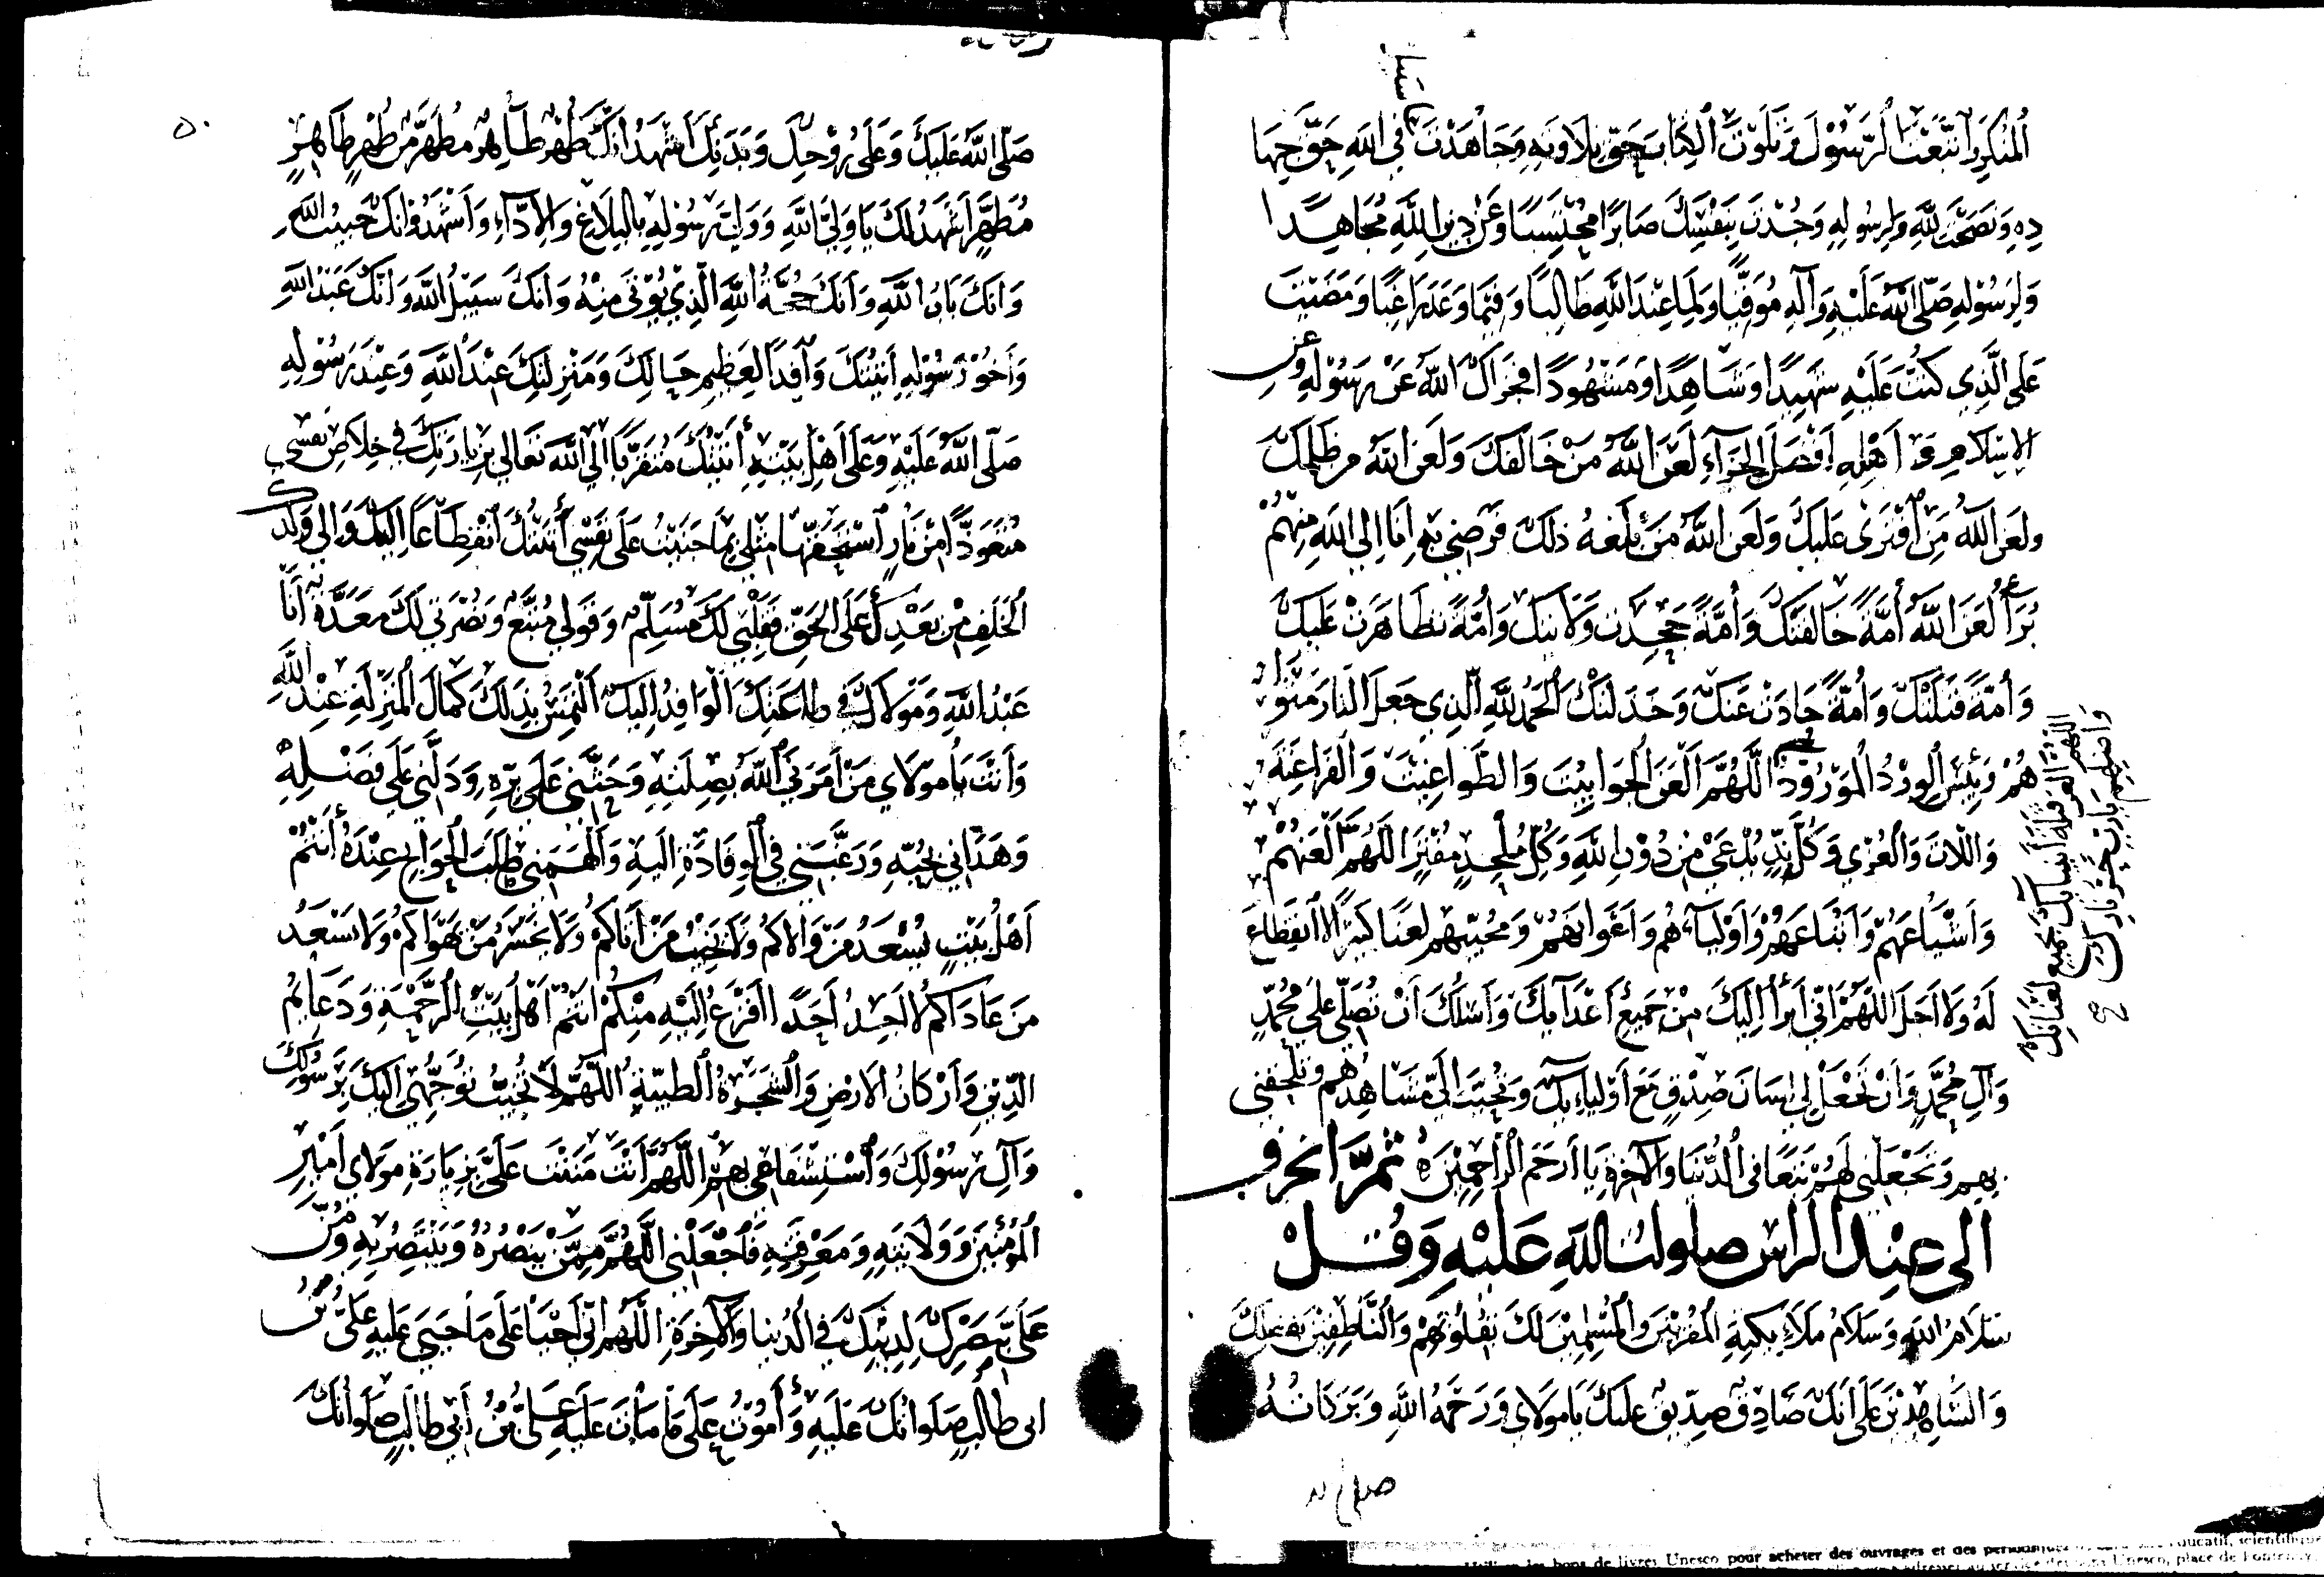 المُنكَرِ وَاتَّبَعْتَ الرَّسُوْلَ وَتَلَوْتَ الكِتَابَ حَقَّ تِلَاوَتِهِ وَجَاهَدْتَ فِي اللَّهِ حَقَّ جِهَا
دِهِ وَنَصَحْتَ لِلَّهِ وَلِرَسُولِهِ وَجُدْتَ بِنَفْسِكَ صَابِرًا مُحْتَسِبًا وَعَنْ دِينِ اللَّهِ مُجَاهِدًا
وَلِرَسُوْلِهِ صَلَّى اللَّهُ عَلَيْهِ وَآلِهِ مُوَقِّيًا وَلِمَا عِنْدَ اللَّهِ طَالِبًا وَفِيمَا وَعَدَ رَاغِبًا وَمَضَيْتَ
عَلَى الَّذِي كُنْتَ عَلَيْهِ شَهِيدًا وَشَاهِدًا وَمَشْهُودًا فَجَزَاكَ اللَّهُ عَنْ رَسُوْلِهِ وَعَنِ
الإِسْلَامِ وَ أَهْلِهِ أَفْضَلَ الجَزَآءِ لَعَنَ اللَّهُ مَنْ خَالَفَكَ وَلَعَنَ اللَّهُ مَنْ ظَلَمَكَ
وَلَعَنَ اللَّهُ مَنِ افْتَرَى عَلَيْكَ وَلَعَنَ اللَّهُ مَنْ بَلَغَهُ ذَلِكَ فَرَضِيَ بِهِ أَنَا إِلَى اللَّهِ مِنْهُمْ
بُرَآءُ لَعَنَ اللَّهُ أُمَّةً خَالَفَتْكَ وَأُمَّةً جَحَدَتْ وَلَايَتَكَ وَأُمَّةً تَظَاهَرَتْ عَلَيْكَ
وَأُمَّةً قَتَلَتْكَ وَأُمَّةً حَادَتْ عَنْكَ وَخَذَلَتْكَ الحَمْدُ لِلَّهِ الَّذِي جَعَلَ النَّارَ مَثْوَا
هُمْ وَبِئْسَ الوِرْدُ المَوْرُودُ اللَّهُمَّ العَنِ الجَوَابِيْتَ وَالطَّوَاغِيْتَ وَالفَرَاعِنَةَ
وَاللَّاتَ وَالعُزَّى وَكُلَّ نِدٍّ يُدْعَى مِنْ دُوْنِ اللَّهِ وَكُلَّ مُلْحِدٍ مُفْتَرٍ اللَّهُمَّ العَنْهُمْ
وَأَشْيَاعَهُمْ وَأَتْبَاعَهُمْ وَأَوْلِيَآءَهُمْ وَأَعْوَانَهُمْ وَمُحِبِّيْهِمْ لَعْنًا كَثِيْرًا لَا انْقِطَاعَ
لَهُ وَلَا أَجَلَ اللَّهُمَّ إِنِّي أَبْرَأُ إِلَيْكَ مِنْ جَمِيْعِ أَعْدَآئِكَ وَأَسْئَلُكَ أَنْ تُصَلِّيَ عَلَى مُحَمَّدٍ
وَآلِ مُحَمَّدٍ وَأَنْ تَجْعَلَ لِي لِسَانَ صِدْقٍ مَعَ أَوْلِيَائِكَ وَتُحَبِّبَ إِلَيَّ مَشَاهِدَهُمْ وَتُلْحِقَنِي
بِهِمْ وَتَجْعَلَنِي لَهُمْ تَبَعًا فِي الدُّنْيَا وَالآخِرَةِ يَا أَرْحَمَ الرَّاحِمِيْنَ ثُمَّ انْحَرِفْ
إلى عِنْدِ الراس صلوات اللهِ عَلَيْهِ وَقُلْ
سَلَامُ اللَّهِ وَسَلَامُ مَلَائِكَتِهِ المُقَرَّبِيْنَ وَالمُسْلِمِيْنَ لَكَ بِقُلُوبِهِمْ وَالنَّاطِقِيْنَ بِفَضْلِكَ
وَالشَّاهِدِيْنَ عَلَى أَنَّكَ صَادِقٌ صِدِّيْقٌ عَلَيْكَ يَا مَوْلَايَ وَرَحْمَةُ اللَّهِ وَبَرَكَاتُهُ
اللهم العن قتلة
صلى الله
٥٠
صَلَّى اللَّهُ عَلَيْكَ وَعَلَى رُوْحِكَ وَبَدَنِكَ أَشْهَدُ أَنَّكَ طُهْرٌ طَاهِرٌ مُطَهَّرٌ مِنْ طُهْرٍ طَاهِرٍ
مُطَهَّرٍ أَشْهَدُ لَكَ يَا وَلِيَّ اللَّهِ وَوَلِيَّ رَسُوْلِهِ بِالبَلَاغِ وَالأَدَآءِ وَأَشْهَدُ أَنَّكَ حَبِيْبُ اللَّهِ
وَأَنَّكَ بَابُ اللَّهِ وَأَنَّكَ حُجَّةُ اللَّهِ الَّذِي يُؤْتَى مِنْهُ وَأَنَّكَ سَبِيْلُ اللَّهِ وَأَنَّكَ عَبْدُ اللَّهِ
وَأَخُوْ رَسُوْلِهِ أَتَيْتُكَ وَافِدًا لِعَظِيْمِ حَالِكَ وَمَنْزِلَتِكَ عِنْدَ اللَّهِ وَعِنْدَ رَسُوْلِهِ
صَلَّى اللَّهُ عَلَيْهِ وَعَلَى أَهْلِ بَيْتِهِ أَتَيْتُكَ مُتَقَرِّبًا إِلَى اللَّهِ تَعَالَى بِزِيَارَتِكَ فِي خَلَاصِ نَفْسِي
مُتَعَوِّذًا مِنْ نَارٍ اسْتَحَقَّهَا مِثْلِي بِمَا جَنَيْتُ عَلَى نَفْسِي أَتَيْتُكَ انْقِطَاعًا إِلَيْكَ وَإِلَى وَلَدِكَ
الخَلَفِ مِنْ بَعْدِكَ عَلَى الحَقِّ فَقَلْبِي لَكَ مُسَلِّمٌ وَقَوْلِي مُتَّبَعٌ وَنُصْرَتِي لَكَ مُعَدَّةٌ أَنَا
عَبْدُ اللَّهِ وَمَوْلَاكَ فِي طَاعَتِكَ الوَافِدُ إِلَيْكَ أَلْتَمِسُ بِذَلِكَ كَمَالَ المَنْزِلَةِ عِنْدَ اللَّهِ
وَأَنْتَ يَا مَوْلَايَ مَنْ أَمَرَنِي اللَّهُ بِصِلَتِهِ وَحَثَّنِي عَلَى بِرِّهِ وَدَلَّنِي عَلَى فَضْلِهِ
وَهَدَانِي لِحُبِّهِ وَرَغَّبَنِي فِي الوِفَادَةِ إِلَيْهِ وَأَلْهَمَنِي طَلَبَ الحَوَائِجِ عِنْدَهُ أَنْتُمْ
أَهْلُ بَيْتٍ يَسْعَدُ مَنْ وَالَاكُمْ وَلَا يَخِيْبُ مَنْ أَتَاكُمْ وَلَا يَخْسَرُ مَنْ يَهْوَاكُمْ وَلَا يَسْعَدُ
مَنْ عَادَاكُمْ لَا أَجِدُ أَحَدًا أَفْزَعُ إِلَيْهِ مِنْكُمْ أَنْتُمْ أَهْلُ بَيْتِ الرَّحْمَةِ وَدَعَائِمُ
الدِّيْنِ وَأَرْكَانُ الأَرْضِ وَالشَّجَرَةُ الطَّيِّبَةُ اللَّهُمَّ لَا تُخَيِّبْ تَوَجُّهِي إِلَيْكَ بِرَسُولِكَ
وَآلِ رَسُوْلِكَ وَاسْتِشْفَاعِي بِهِمْ اللَّهُمَّ أَنْتَ مَنَنْتَ عَلَيَّ بِزِيَارَةِ مَوْلَايَ أَمِيْرِ
المُؤْمِنِيْنَ وَوَلَايَتِهِ وَمَعْرِفَتِهِ فَاجْعَلْنِي اللَّهُمَّ مِمَّنْ يَنْصُرُهُ وَيَنْتَصِرُ بِهِ وَمُنَّ
عَلَيَّ بِنَصْرِكَ لِدِيْنِكَ فِي الدُّنْيَا وَالآخِرَةِ اللَّهُمَّ إِنِّي أَحْيَا عَلَى مَا حَيِيَ عَلَيْهِ عَلِيُّ بْنُ
أبي طَالِبٍ صَلَوَاتُكَ عَلَيْهِ وَأَمُوْتُ عَلَى مَا مَاتَ عَلَيْهِ عَلِيُّ بْنُ أَبِي طَالِبٍ صَلَوَاتُكَ